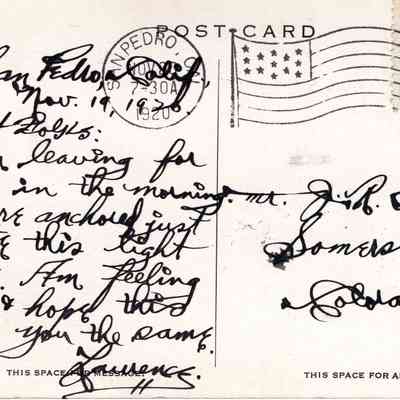 POST CARD
SAN PEDRO, CAL.
NOV 20
7-30A
1920
an Pedro, Calif,
Nov. 19, 1920.
Folks:
leaving for
in the morning.
re anchored just
this light
. Am feeling
& hope this
you the same.
Lawrence.
THIS SPACE FOR MESSAGE.
Mr. J. R.
Somers
Colora
THIS SPACE FOR A